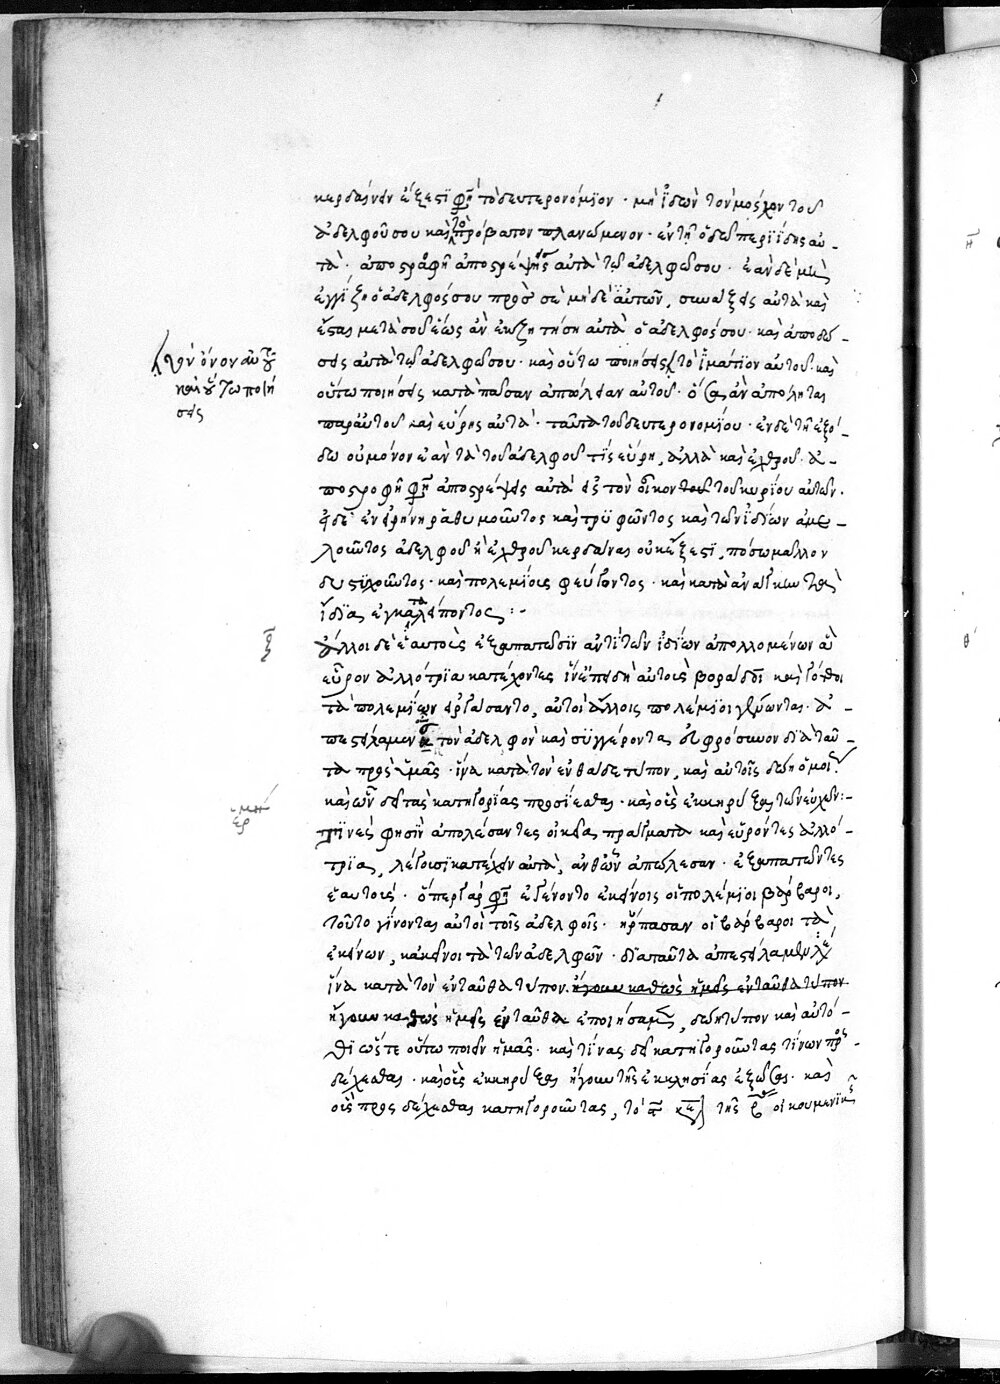 κερδαίνειν ἔξεστι φη τὸ δευτερονόμιον · μὴ ἰδὼν τὸν μόσχον τοῦ
ἀδελφοῦ σου καὶ τὸ πρόβατον πλανώμενον · ἐν τῇ ὁδῷ περιΐδης αὐ-
τά · ἀποστροφῇ ἀποστρέψης αὐτὰ τῷ ἀδελφῷ σου · ἐὰν δὲ μὴ
ἐγγίζῃ ὁ ἀδελφός σου πρὸς σὲ μὴ δὲ αὐτῶν, συνάξεις αὐτὰ καὶ
ἔσται μετὰ σοῦ ἕως ἂν ἐκζητήσῃ αὐτὰ ὁ ἀδελφός σου · καὶ ἀποδώ-
σεις αὐτὰ τῷ ἀδελφῷ σου · καὶ οὕτω ποιήσεις τὸ ἱμάτιον αὐτοῦ · καὶ
τὸν ὄνον αὐτοῦ
καὶ οὕτω ποιή
σεις
οὕτω ποιήσεις κατὰ πᾶσαν ἀπώλειαν αὐτοῦ · ὅσα ἂν ἀπόληται
παρ' αὐτοῦ καὶ εὕρῃς αὐτά · ταῦτα τοῦ δευτερονομίου · ἐν δὲ τῇ ἐξό-
δῳ οὐ μόνον ἐὰν τὰ τοῦ ἀδελφοῦ τίς εὕρῃ, ἀλλὰ καὶ ἐχθροῦ · ἀ-
ποστροφῇ φη ἀποστρέψεις αὐτὰ εἰς τὸν οἶκον τοῦ κυρίου αὐτῶν ·
εἰ δὲ ἐν εἰρήνῃ ῥαθυμοῦντος καὶ τρυφῶντος καὶ τῶν ἰδίων ἀμε-
λοῦντος ἀδελφοῦ ἢ ἐχθροῦ κερδᾶναι οὐκ ἔξεστι, πόσω μᾶλλον
δυστυχοῦντος · καὶ πολεμίους φεύγοντος · καὶ κατὰ ἀνάγκην τὰ
ἴδια ἐγκαταλείποντος :-
Ἄλλοι δὲ ἑαυτοὺς ἐξαπατῶσιν ἀντὶ τῶν ἰδίων ἀπολλομένων ἃ
εὗρον ἀλλότρια κατέχοντες ἵν' ἐπειδὴ αὐτοὺς βοράδοι καὶ γότθοι
τὰ πολεμίων εἰργάσαντο, αὐτοὶ ἄλλοις πολέμιοι γίνωνται · ἀ-
πεστείλαμεν τὸν ἀδελφὸν καὶ συγγέροντα εὐφρόσυνον διὰ ταῦ-
τα πρὸς ὑμᾶς · ἵνα κατὰ τὸν ἐνθάδε τύπον, καὶ αὐτοῖς δώῃ ὁμοί
καὶ ὧν δεῖ τὰς κατηγορίας προσίεσθαι · καὶ οὓς ἐκκηρύξαι τῶν εὐχῶν:-
Τινές φησὶν ἀπολέσαντες οἰκεῖα πράγματα καὶ εὑρόντες ἀλλό-
τρια, λέγουσι κατέχειν αὐτὰ, ἀνθ' ὧν ἀπώλεσαν · ἐξαπατῶντες
ἑαυτούς · ὅπερ γάρ φη ἐγένοντο ἐκείνοις οἱ πολέμιοι βάρβαροι,
τοῦτο γίνονται αὐτοὶ τοῖς ἀδελφοῖς · ἥρπασαν οἱ βάρβαροι τὰ
ἐκείνων, κἀκεῖνοι τὰ τῶν ἀδελφῶν · διὰ ταῦτα ἀπεστείλαμεν
ἵνα κατὰ τὸν ἐνταῦθα τύπον ἤγουν καθὼς ἡμεῖς ἐνταῦθα τύπον
ἤγουν καθὼς ἡμεῖς ἐνταῦθα ἐποιήσαμεν, δώῃ τύπον καὶ αὐτό-
θι ὥστε οὕτω ποιεῖν ἡμᾶς · καὶ τίνας δεῖ κατηγοροῦντας τίνων προσ-
δέχεσθαι · καὶ οὓς ἐκκηρύξαι ἤγουν τῆς ἐκκλησίας ἐξῶσαι · καὶ
οὓς προσδέχεσθαι κατηγοροῦντας, τὸ τῆς οἰκουμενικῆς